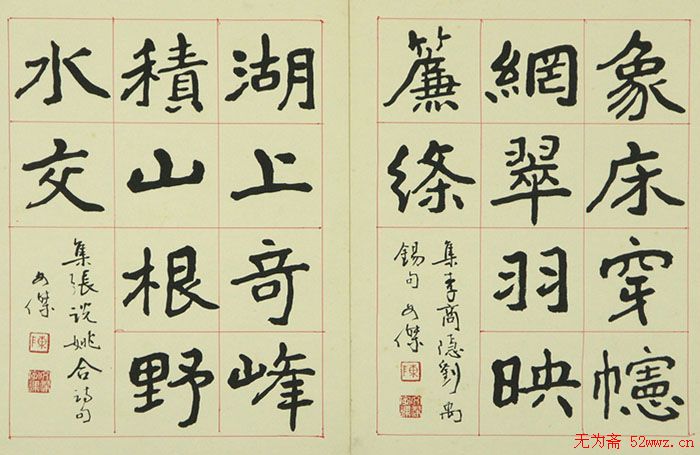 象床穿幰
網翠羽映
簾絛
集李商隱劉禹
錫句
湖上竒峰
積山根野
水交
集張說姚合詩句
无为斋 52wwz.cn